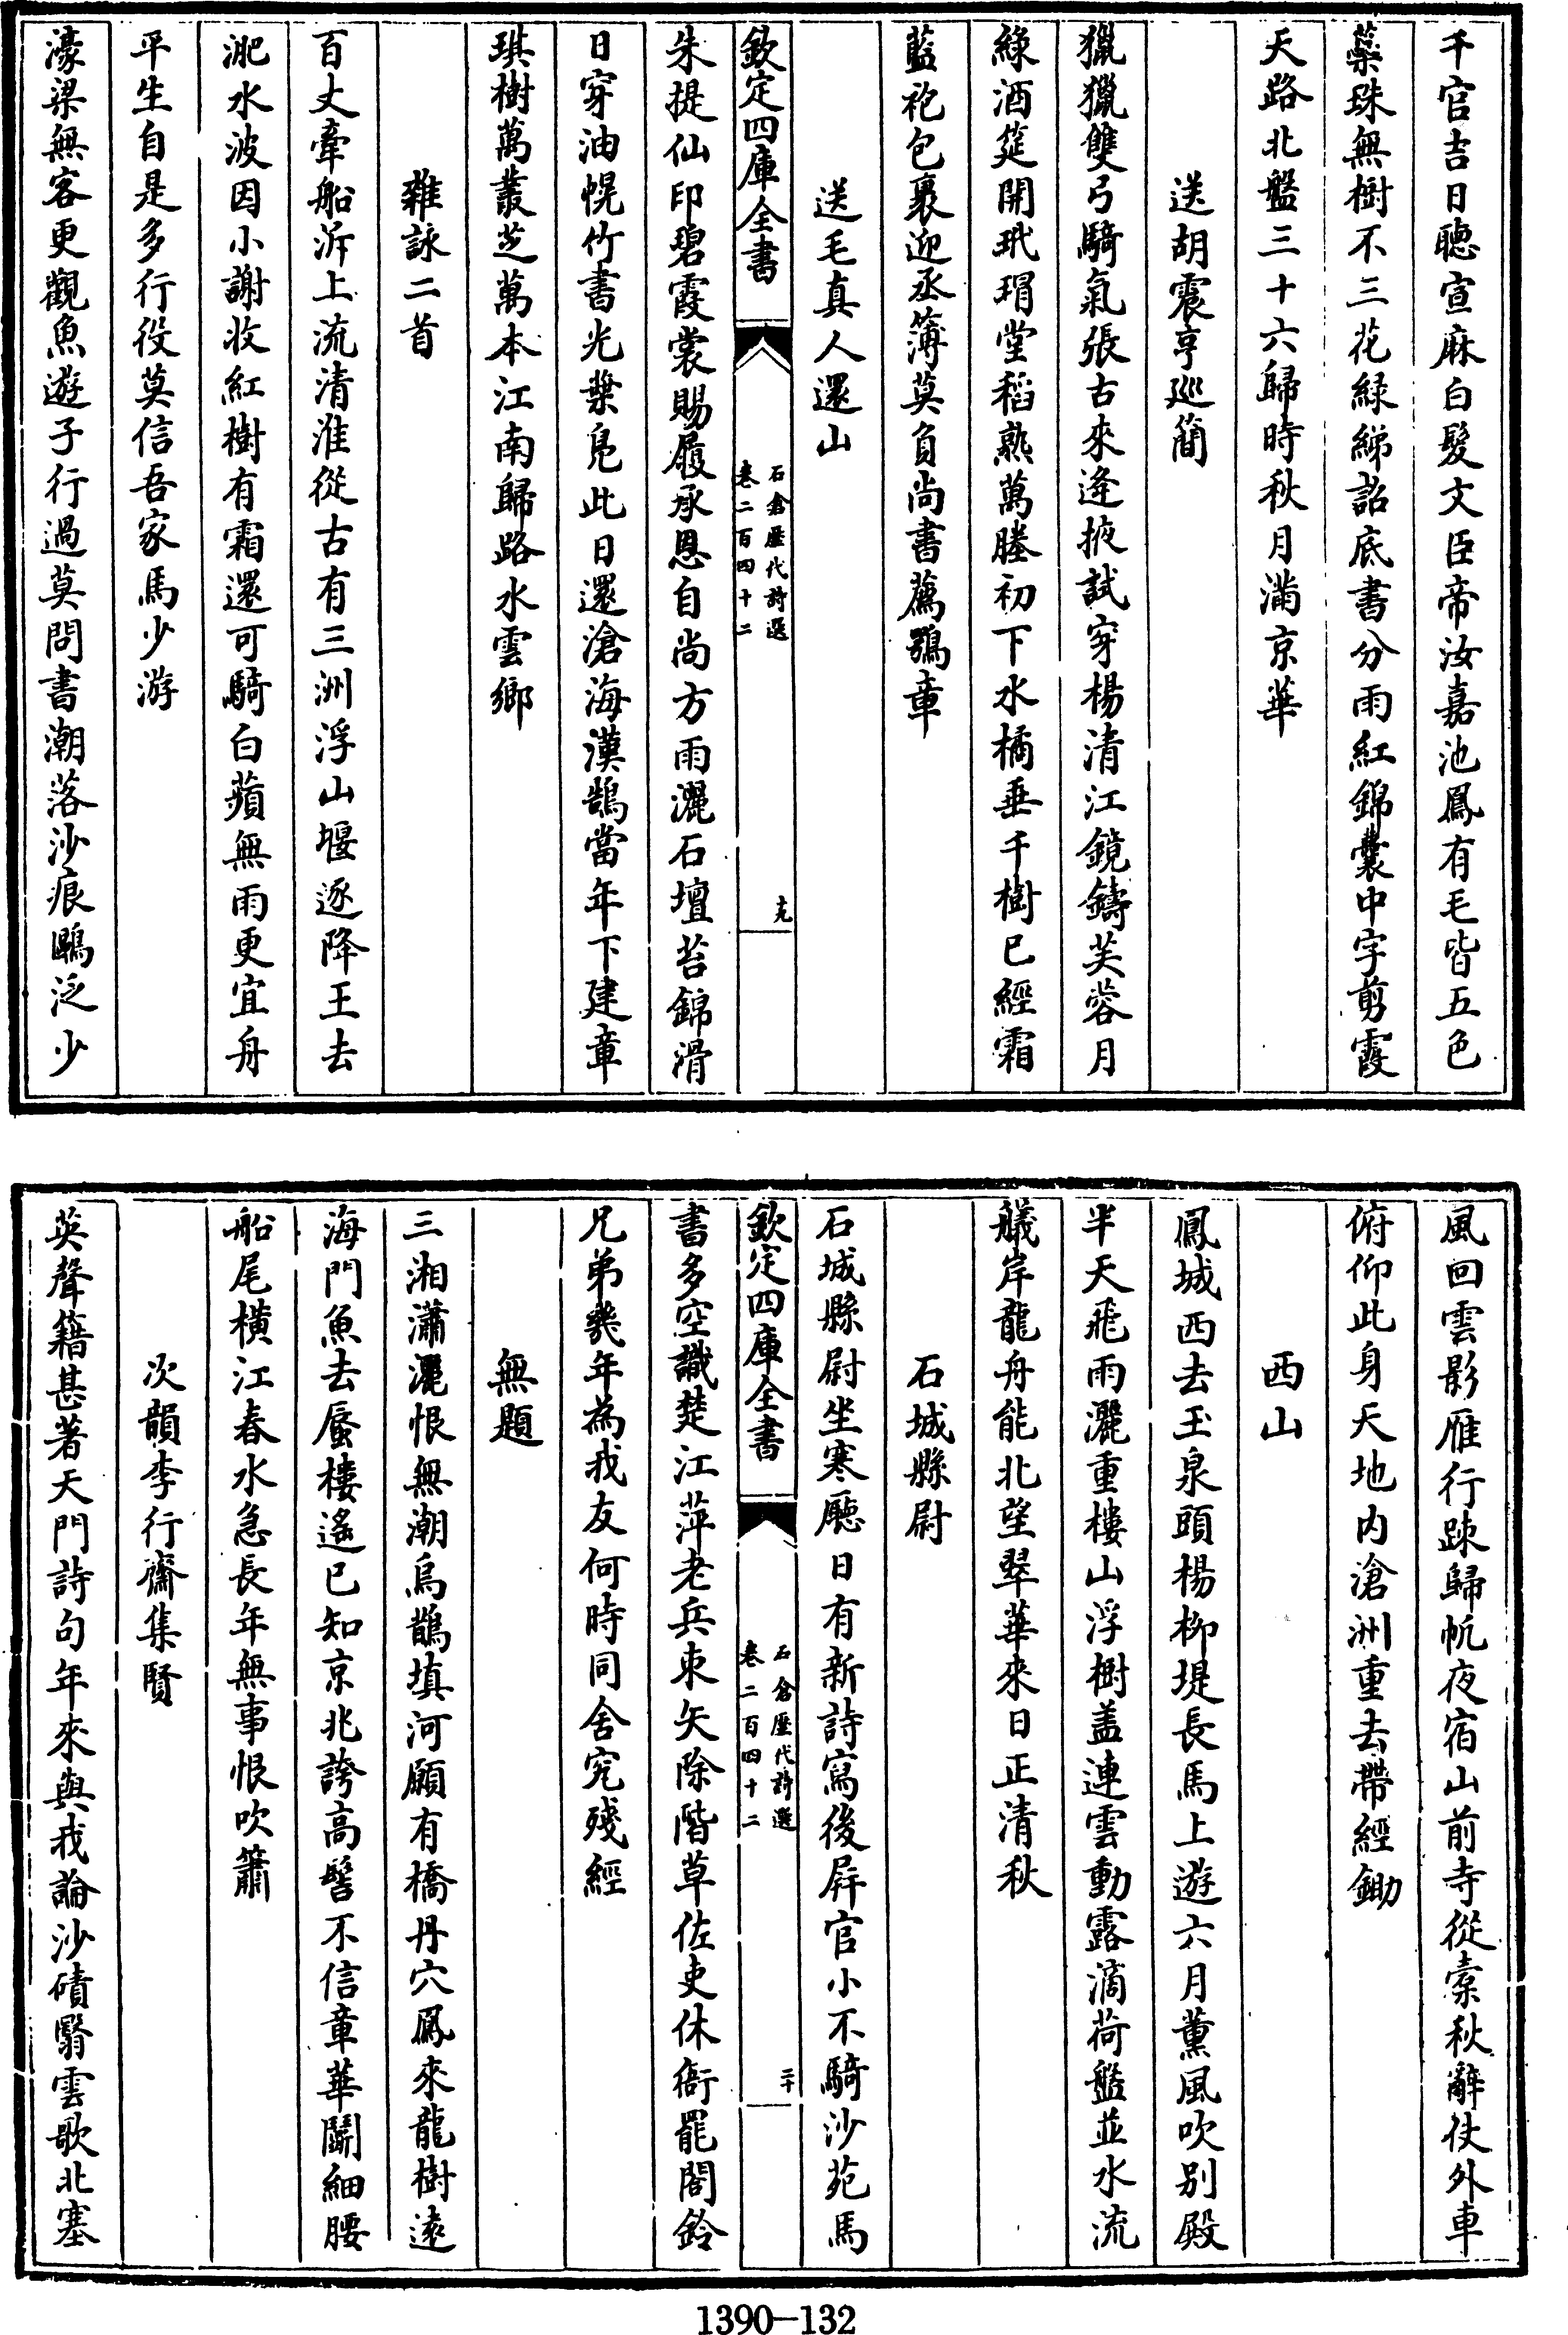 千官吉日聽宣麻白髮文臣帝汝嘉池鳳有毛皆五色
蘂珠無樹不三花緑綈詔底書分雨紅錦囊中字剪霞
天路北盤三十六歸時秋月滿京華
送胡震亨巡簡
獵獵雙弓騎氣張古來逢掖試穿楊清江鏡鑄芙蓉月
綠酒筵開玳瑁堂稻熟萬塍初下水橘垂千樹已經霜
藍袍包裹迎丞簿莫負尚書薦鶚章
送毛真人還山
欽定四庫全書
石倉歷代詩選
卷二百四十二
十九
朱提仙印碧霞裳賜履承恩自尚方雨灑石壇苔錦滑
日穿油幌竹書光葉鳬此日還滄海漢鵠當年下建章
琪樹萬叢芝萬本江南歸路水雲鄉
雜詠二首
百丈牽船泝上流清淮從古有三洲浮山堰逐降王去
淝水波因小謝收紅樹有霜還可騎白蘋無雨更宜舟
平生自是多行役莫信吾家馬少游
濠梁無客更觀魚遊子行過莫問書潮落沙痕鷗泛少
風回雲影雁行踈歸帆夜宿山前寺從橐秋辭仗外車
俯仰此身天地内滄洲重去帶經鋤
西山
鳳城西去玉泉頭楊柳堤長馬上遊六月薰風吹别殿
半天飛雨灑重樓山浮樹盖連雲動露滴荷盤並水流
艤岸龍舟能北望翠華來日正清秋
石城縣尉
石城縣尉坐寒廳日有新詩寫後屏官小不騎沙苑馬
欽定四庫全書
石倉歷代詩選
卷二百四十二
二十
書多空識楚江萍老兵束矢除階草佐吏休衙罷閣鈴
兄弟幾年為我友何時同舍究殘經
無題
三湘瀟灑恨無潮烏鵲填河願有橋丹穴鳳來龍樹遠
海門魚去蜃樓遙已知京兆誇高髻不信章華鬭細腰
船尾横江春水急長年無事恨吹簫
次韻李行齋集賢
英聲籍甚著天門詩句年來與我論沙磧翳雲歌北塞
1390-132